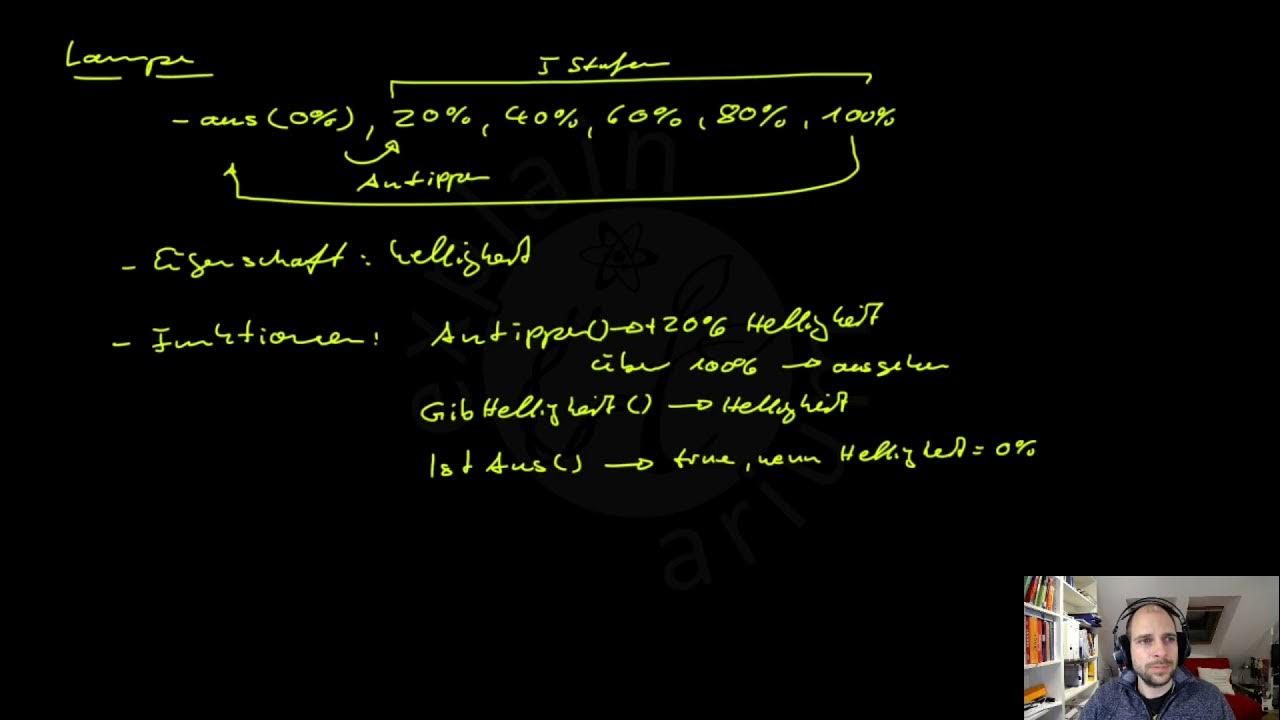 Lampe
5 Stufen
- aus (0%), 20%, 40%, 60%, 80%, 100%
Antippen
- Eigenschaft: Helligkeit
- Funktionen: Antippen() → +20% Helligkeit
über 100% → ausgehen
GibHelligkeit() → Helligkeit
IstAus() → true, wenn Helligkeit = 0%
explain
arius